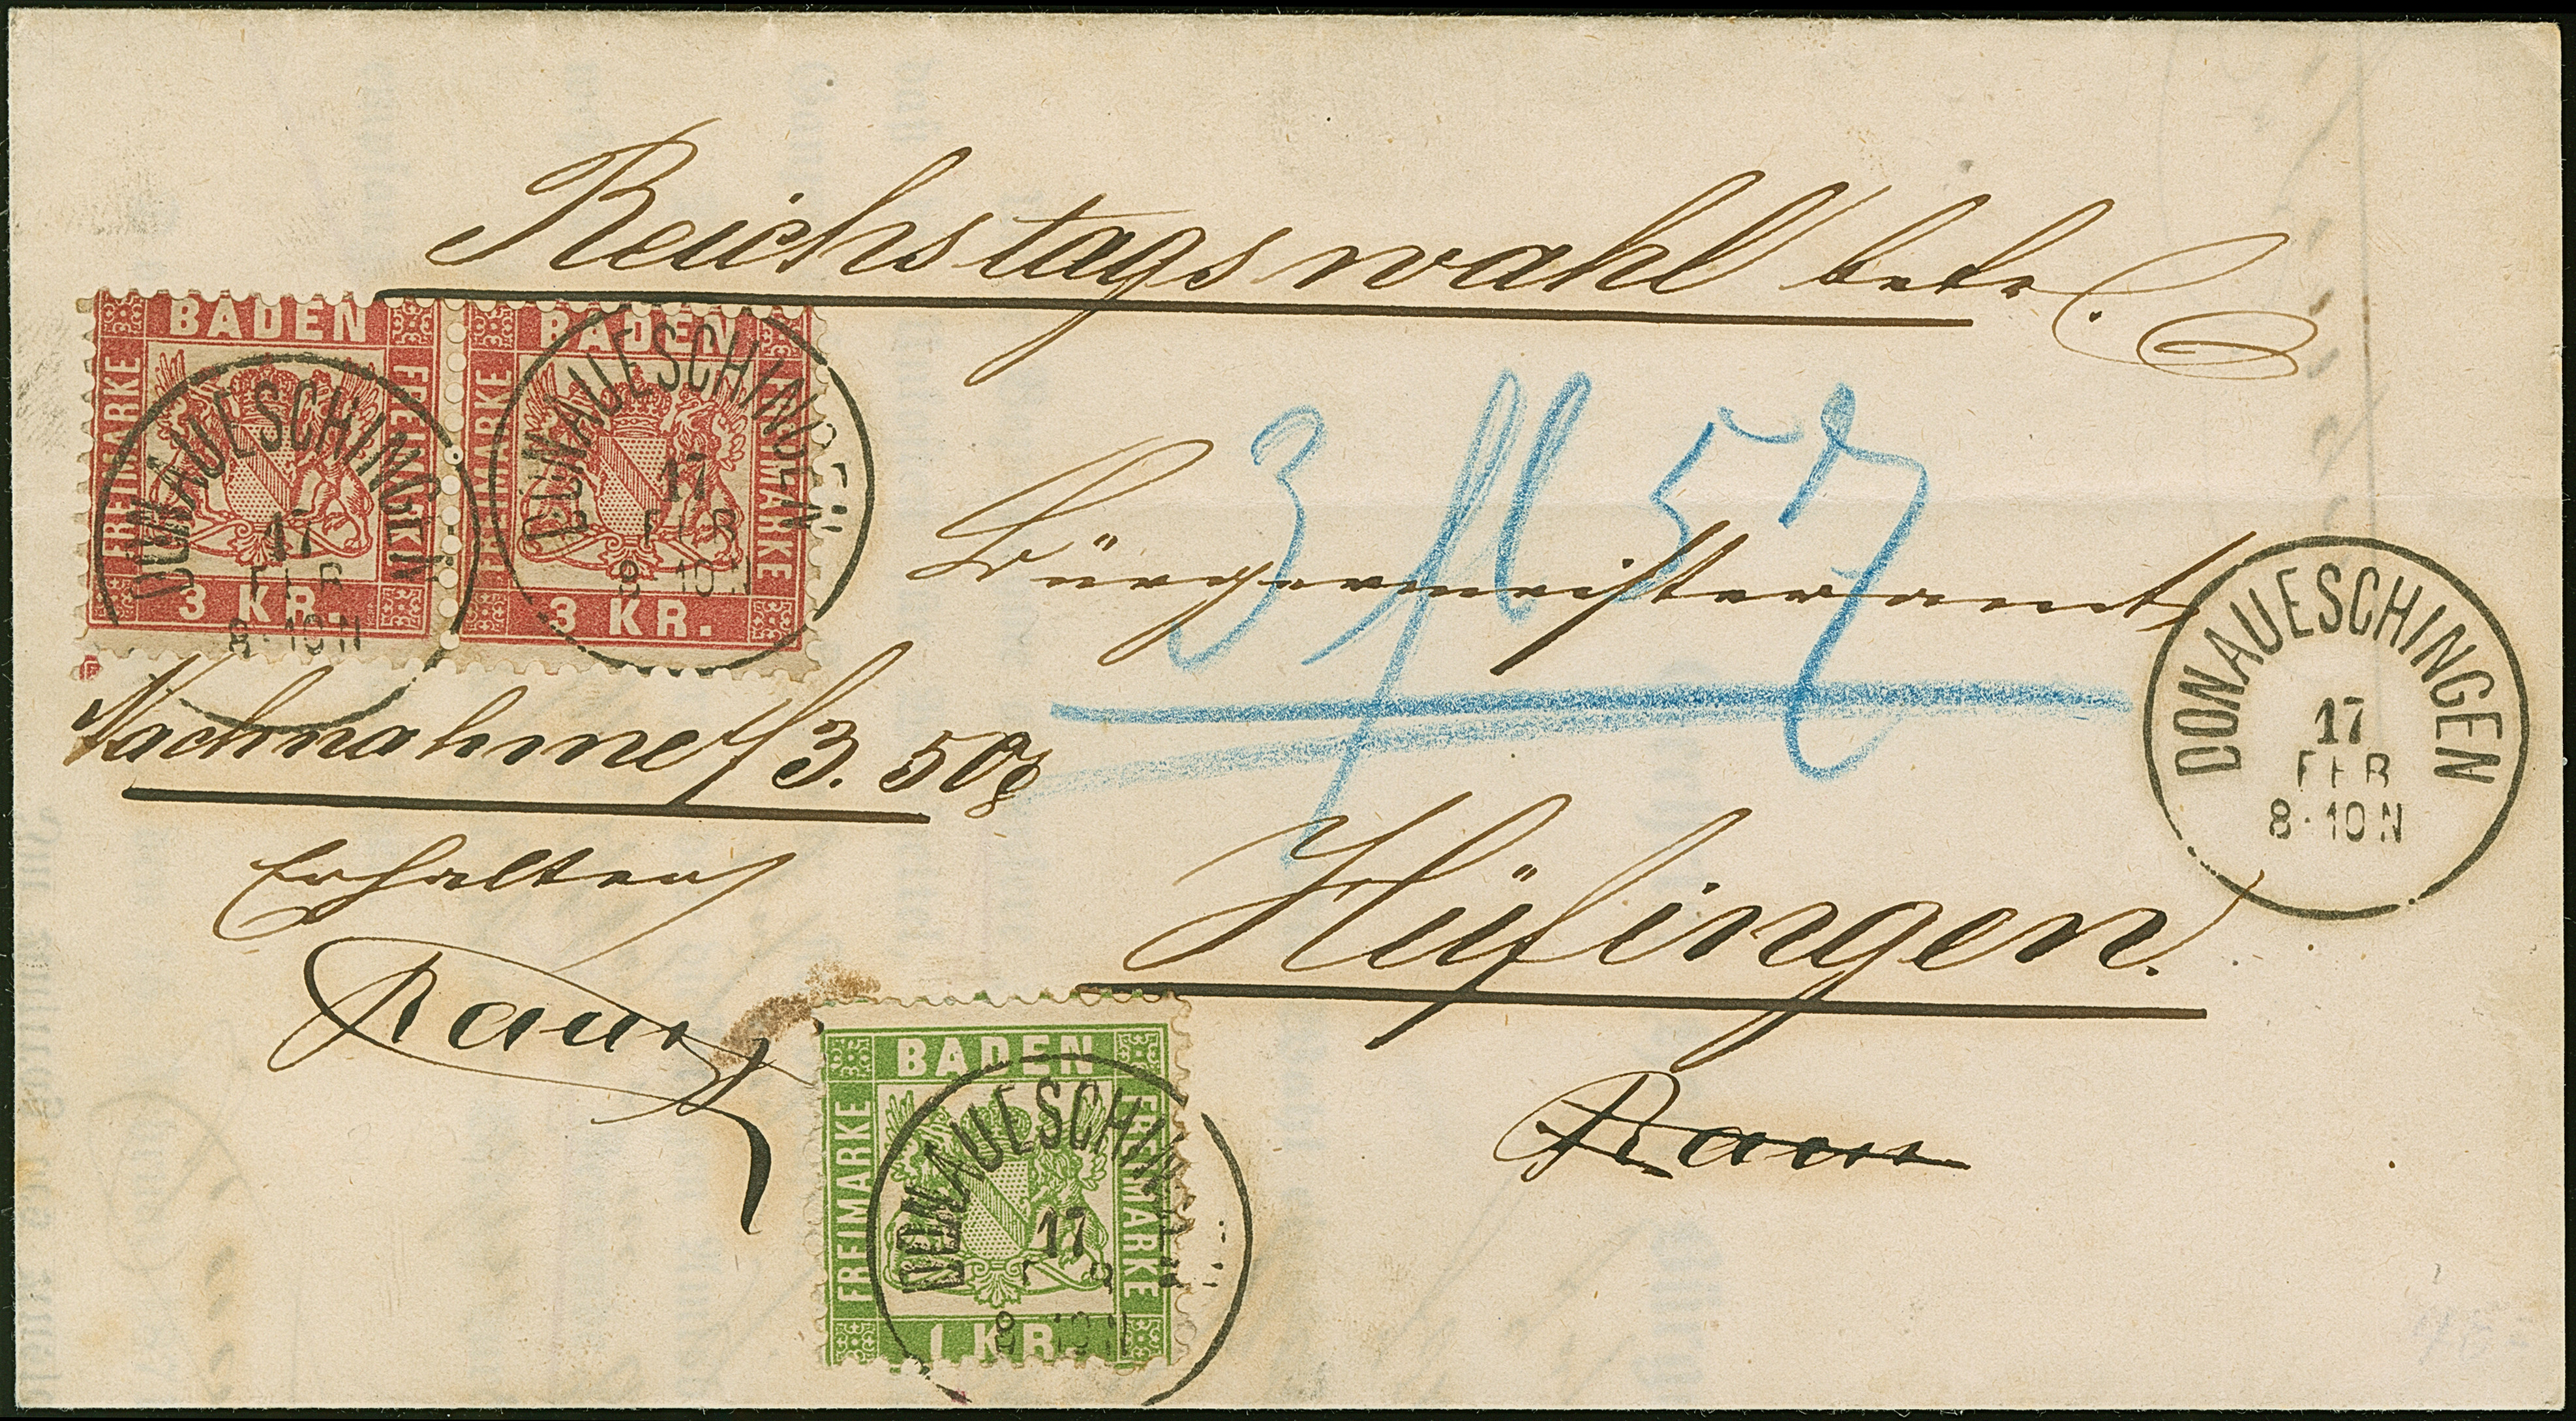 Reichstagswahl betr.
BADEN
FREIMARKE
FREIMARKE
3 KR.
BADEN
FREIMARKE
FREIMARKE
3 KR.
DONAUESCHINGEN
17
FEB
8-10 N
DONAUESCHINGEN
17
FEB
8-10 N
3 fl 57
Bürgermeisteramt
DONAUESCHINGEN
17
FEB
8-10 N
Nachnahme f 3. 50
Erhalten
Hüfingen.
BADEN
FREIMARKE
FREIMARKE
1 KR.
DONAUESCHINGEN
17
FEB
8-10 N